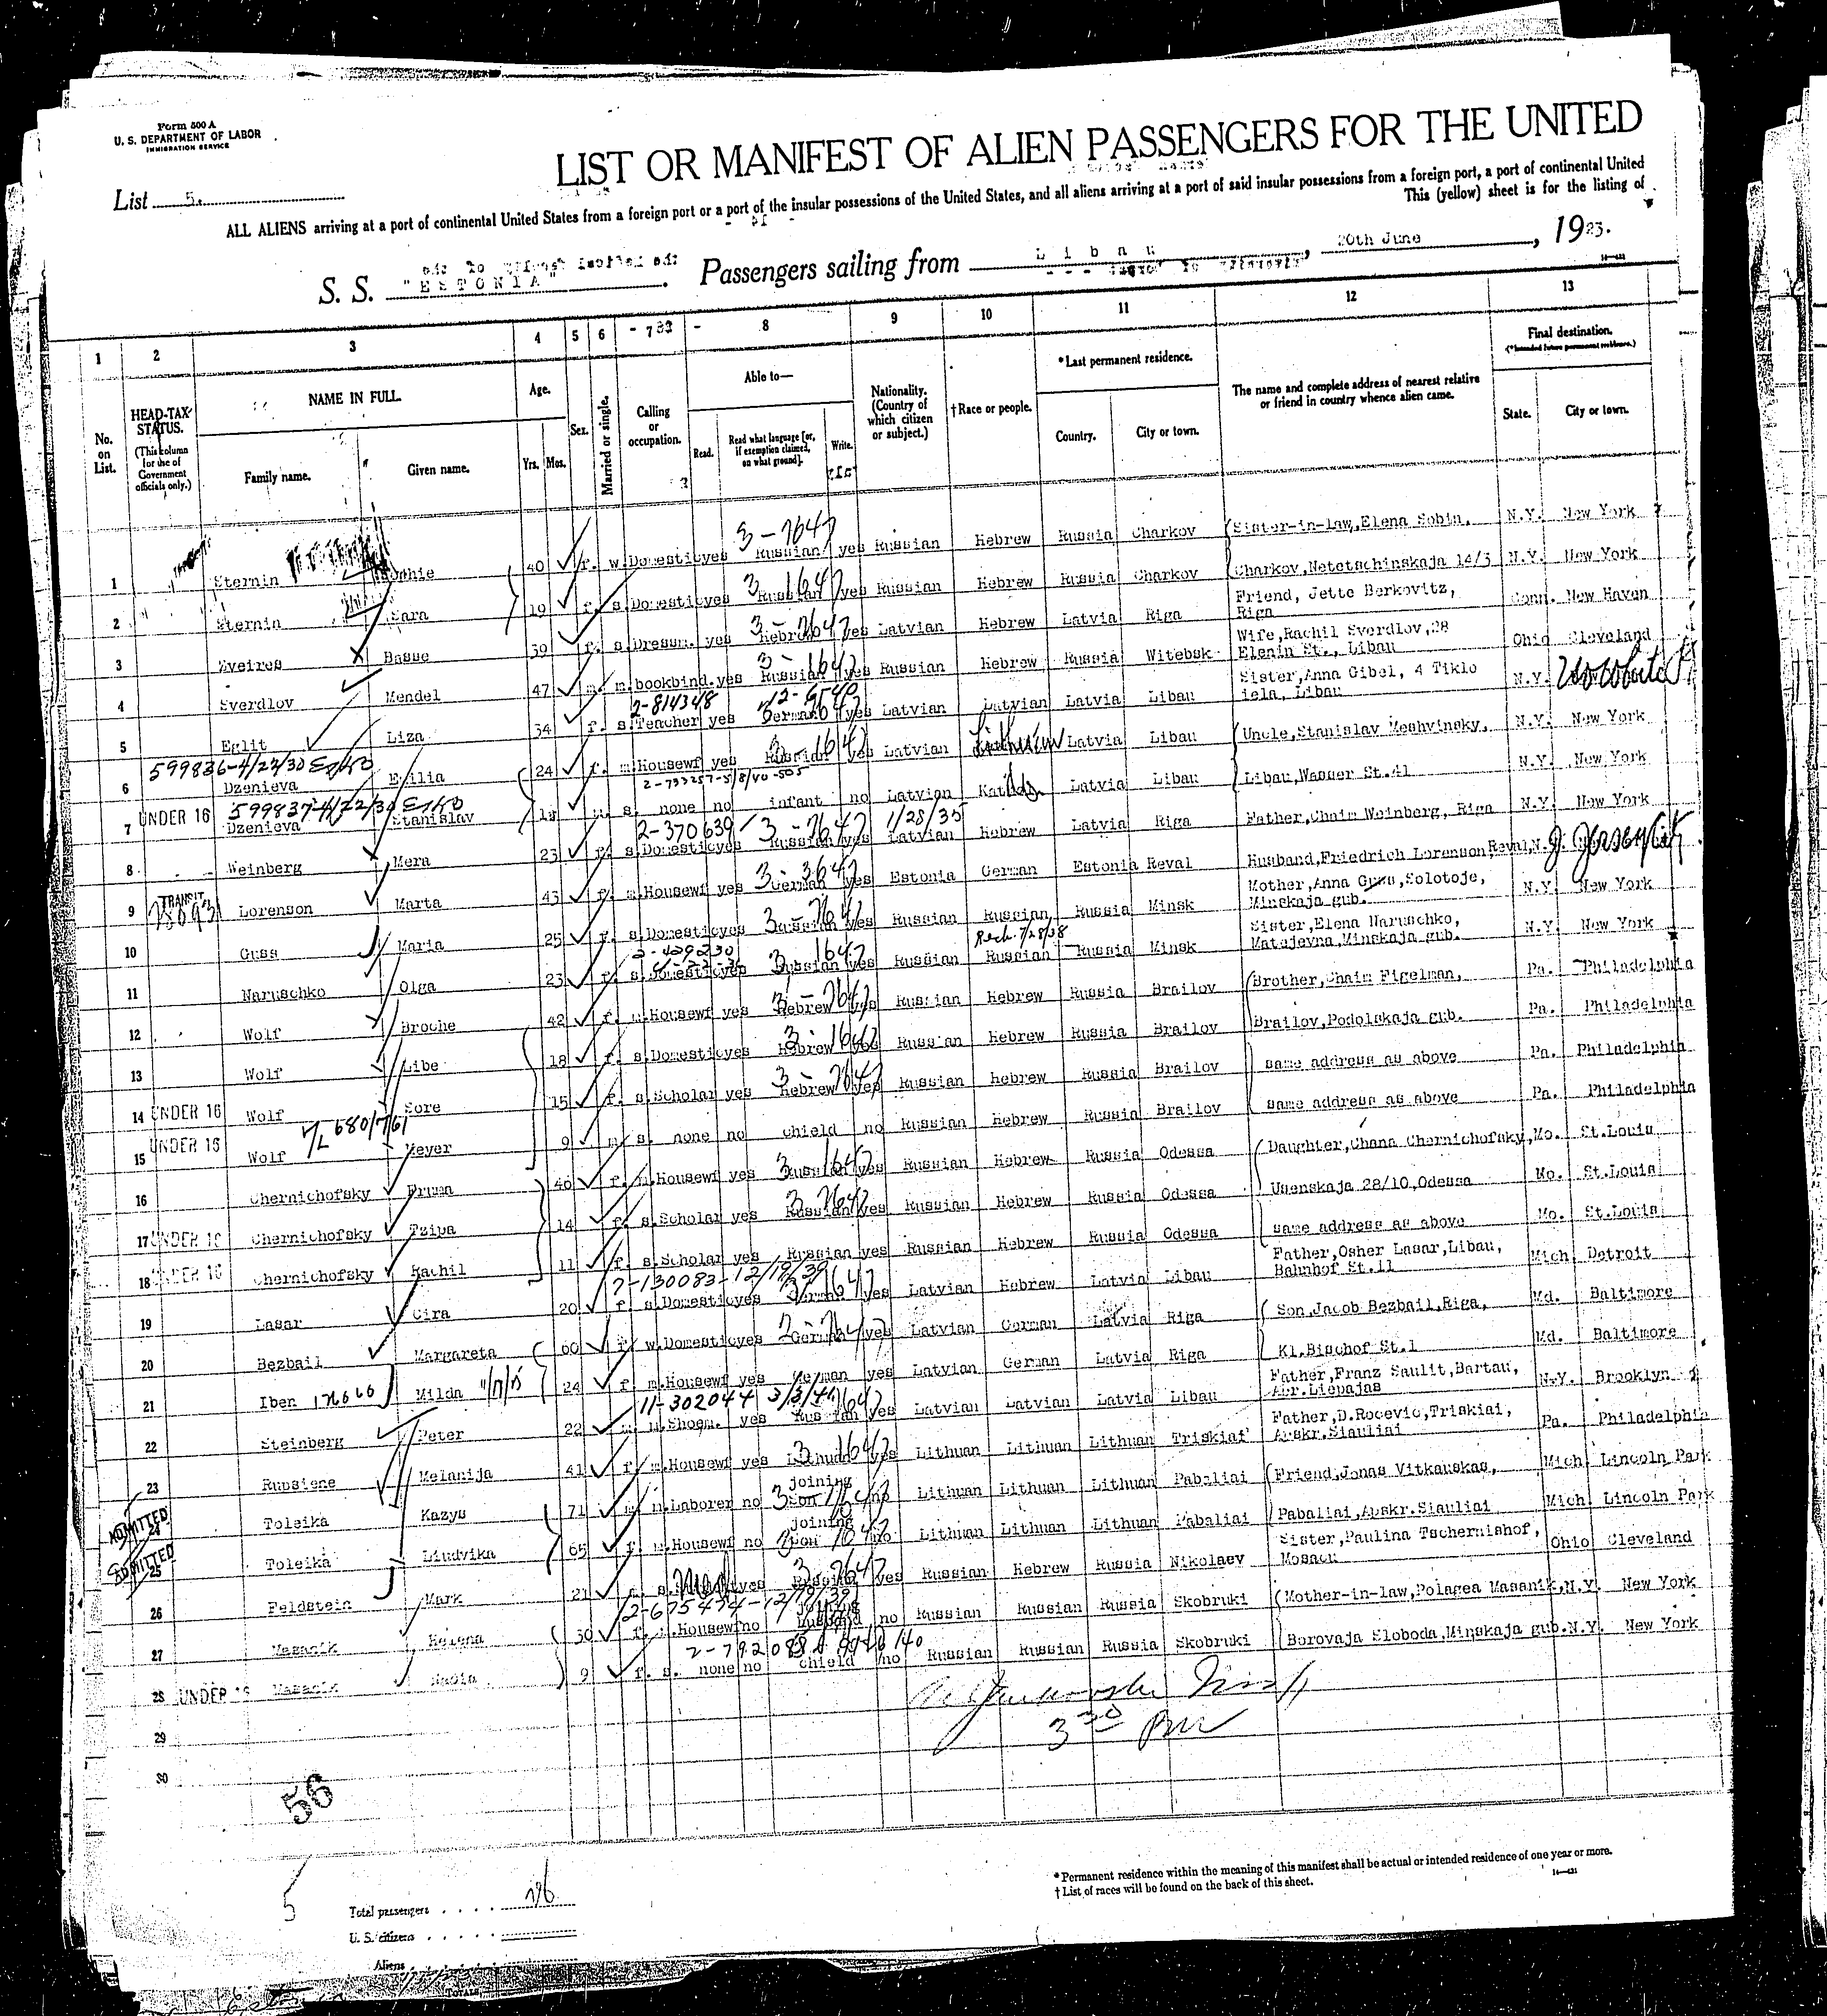 Form 500 A
U. S. DEPARTMENT OF LABOR
IMMIGRATION SERVICE
LIST OR MANIFEST OF ALIEN PASSENGERS FOR THE UNITED
List 5.
ALL ALIENS arriving at a port of continental United States from a foreign port or a port of the insular possessions of the United States, and all aliens arriving at a port of said insular possessions from a foreign port, a port of continental United
This (yellow) sheet is for the listing of
S. S. "ESTONIA" Passengers sailing from Libau, 20th June, 1923.
1 2 3 4 5 6 7 8 9 10 11 12 13
No. on List.
HEAD-TAX STATUS.
(This column for use of Government officials only.)
NAME IN FULL.
Family name. Given name.
Age.
Yrs. Mos.
Sex.
Married or single.
Calling or occupation.
Able to—
Read. Read what language [or, if exemption claimed, on what ground]. Write.
Nationality. (Country of which citizen or subject.)
†Race or people.
*Last permanent residence.
Country. City or town.
The name and complete address of nearest relative or friend in country whence alien came.
Final destination.
(*Intended future permanent residence.)
State. City or town.
1 Sternin 40 f. w. Domestic yes Russian yes Russian Hebrew Russia Charkov Sister-in-law, Elena Sobin, N.Y. New York
2 Sternin Sara 19 f. s. Domestic yes Russian yes Russian Hebrew Russia Charkov Charkov, Netetschinskaja 14/3 N.Y. New York
3 Eveires Basse 39 f. s. Dressm. yes Hebrew yes Latvian Hebrew Latvia Riga Friend, Jette Berkovitz, Riga Conn. New Haven
4 Sverdlov Mendel 47 m. m. bookbind. yes Russian yes Russian Hebrew Russia Witebsk Wife, Rachil Sverdlov, 28 Elenin St., Libau Ohio Cleveland
2-814348
5 Eglit Liza 34 f. s. Teacher yes German yes Latvian Latvian Latvia Libau Sister, Anna Gibel, 4 Tiklo iela, Libau N.Y.
599836-4/22/30
6 Dzenieva Emilia 24 f. m. Housewf yes Russian yes Latvian Latvia Libau Uncle, Stanislav Meshvinsky, N.Y. New York
599837-4/22/30
7 UNDER 16 Dzenieva Stanislav m. s. none no infant no Latvian Latvia Libau Libau, Wasser St. 41 N.Y. New York
2-370639 1/28/35
8 Weinberg Mera 23 f. s. Domestic yes Russian yes Latvian Hebrew Latvia Riga Father, Chaim Weinberg, Riga N.Y. New York
TRANSIT
9 Lorenson Marta 43 f. m. Housewf yes German yes Estonia German Estonia Reval Husband, Friedrich Lorenson, Reval, N.J.
10 Guss Maria 25 f. s. Domestic yes Russian yes Russian Russian Russia Minsk Mother, Anna Guss, Solotoje, Minskaja gub. N.Y. New York
2-429230
11 Naruschko Olga 23 f. s. Domestic yes Russian yes Russian Russian Russia Minsk Sister, Elena Naruschko, Matejevna, Minskaja gub. N.Y. New York
12 Wolf Broche 42 f. m. Housewf yes Hebrew yes Russian Hebrew Russia Brailov Brother, Chaim Figelman, Pa. Philadelphia
13 Wolf Libe 18 f. s. Domestic yes Hebrew yes Russian Hebrew Russia Brailov Brailov, Podolskaja gub. Pa. Philadelphia
14 UNDER 16 Wolf Sore 15 f. s. Scholar yes Hebrew yes Russian Hebrew Russia Brailov same address as above Pa. Philadelphia
15 UNDER 16 Wolf Meyer 9 m. s. none no chield no Russian Hebrew Russia Brailov same address as above Pa. Philadelphia
16 Chernichofsky Fruma 46 f. m. Housewf yes Russian yes Russian Hebrew Russia Odessa Daughter, Chana Chernichofsky, Mo. St.Louis
17 UNDER 16 Chernichofsky Tzipa 14 f. s. Scholar yes Russian yes Russian Hebrew Russia Odessa Usenskaja 28/10, Odessa Mo. St.Louis
18 UNDER 16 Chernichofsky Rachil 11 f. s. Scholar yes Russian yes Russian Hebrew Russia Odessa same address as above Mo. St.Louis
2-130083-12/19/39
19 Lasar Cira 20 f. s. Domestic yes German yes Latvian Hebrew Latvia Libau Father, Osher Lasar, Libau, Bahnhof St.11 Mich Detroit
20 Bezbail Margareta 60 f. w. Domestic yes German yes Latvian German Latvia Riga Son, Jacob Bezbail, Riga, Md. Baltimore
21 Iben Milda 24 f. m. Housewf yes German yes Latvian German Latvia Riga Kl. Bischof St.1 Md. Baltimore
11-302044 3/3/41
22 Steinberg Peter 22 m. m. Shoem. yes Russian yes Latvian Latvian Latvia Libau Father, Franz Saulit, Bartau, Apr. Liepajas N.Y. Brooklyn
23 Rupsiene Melanija 41 f. m. Housewf yes Lithuan yes Lithuan Lithuan Lithuan Triskiai Father, D. Rocevic, Triskiai, Apskr. Siauliai Pa. Philadelphia
24 ADMITTED Toleika Kazys 71 m. m. Laborer no joining son no Lithuan Lithuan Lithuan Pabaliai Friend, Jonas Vitkauskas, Mich Lincoln Park
25 ADMITTED Toleika Liudvika 65 f. m. Housewf no joining son no Lithuan Lithuan Lithuan Pabaliai Pabaliai, Apskr. Siauliai Mich Lincoln Park
26 Feldstein Mark 21 s. yes Russian yes Russian Hebrew Russia Nikolaev Sister, Paulina Tschernishof, Moscau Ohio Cleveland
27 Masanik Helena 30 f. m. Housewf no joining husband no Russian Russian Russia Skobruki Mother-in-law, Polagea Masanik, N.Y. New York
28 UNDER 16 Masanik Nadia 9 f. s. none no chield no Russian Russian Russia Skobruki Borovaja Sloboda, Minskaja gub. N.Y. New York
29
30
56
5
Total passengers
U. S. citizens
Aliens
TOTALS
*Permanent residence within the meaning of this manifest shall be actual or intended residence of one year or more.
†List of races will be found on the back of this sheet.